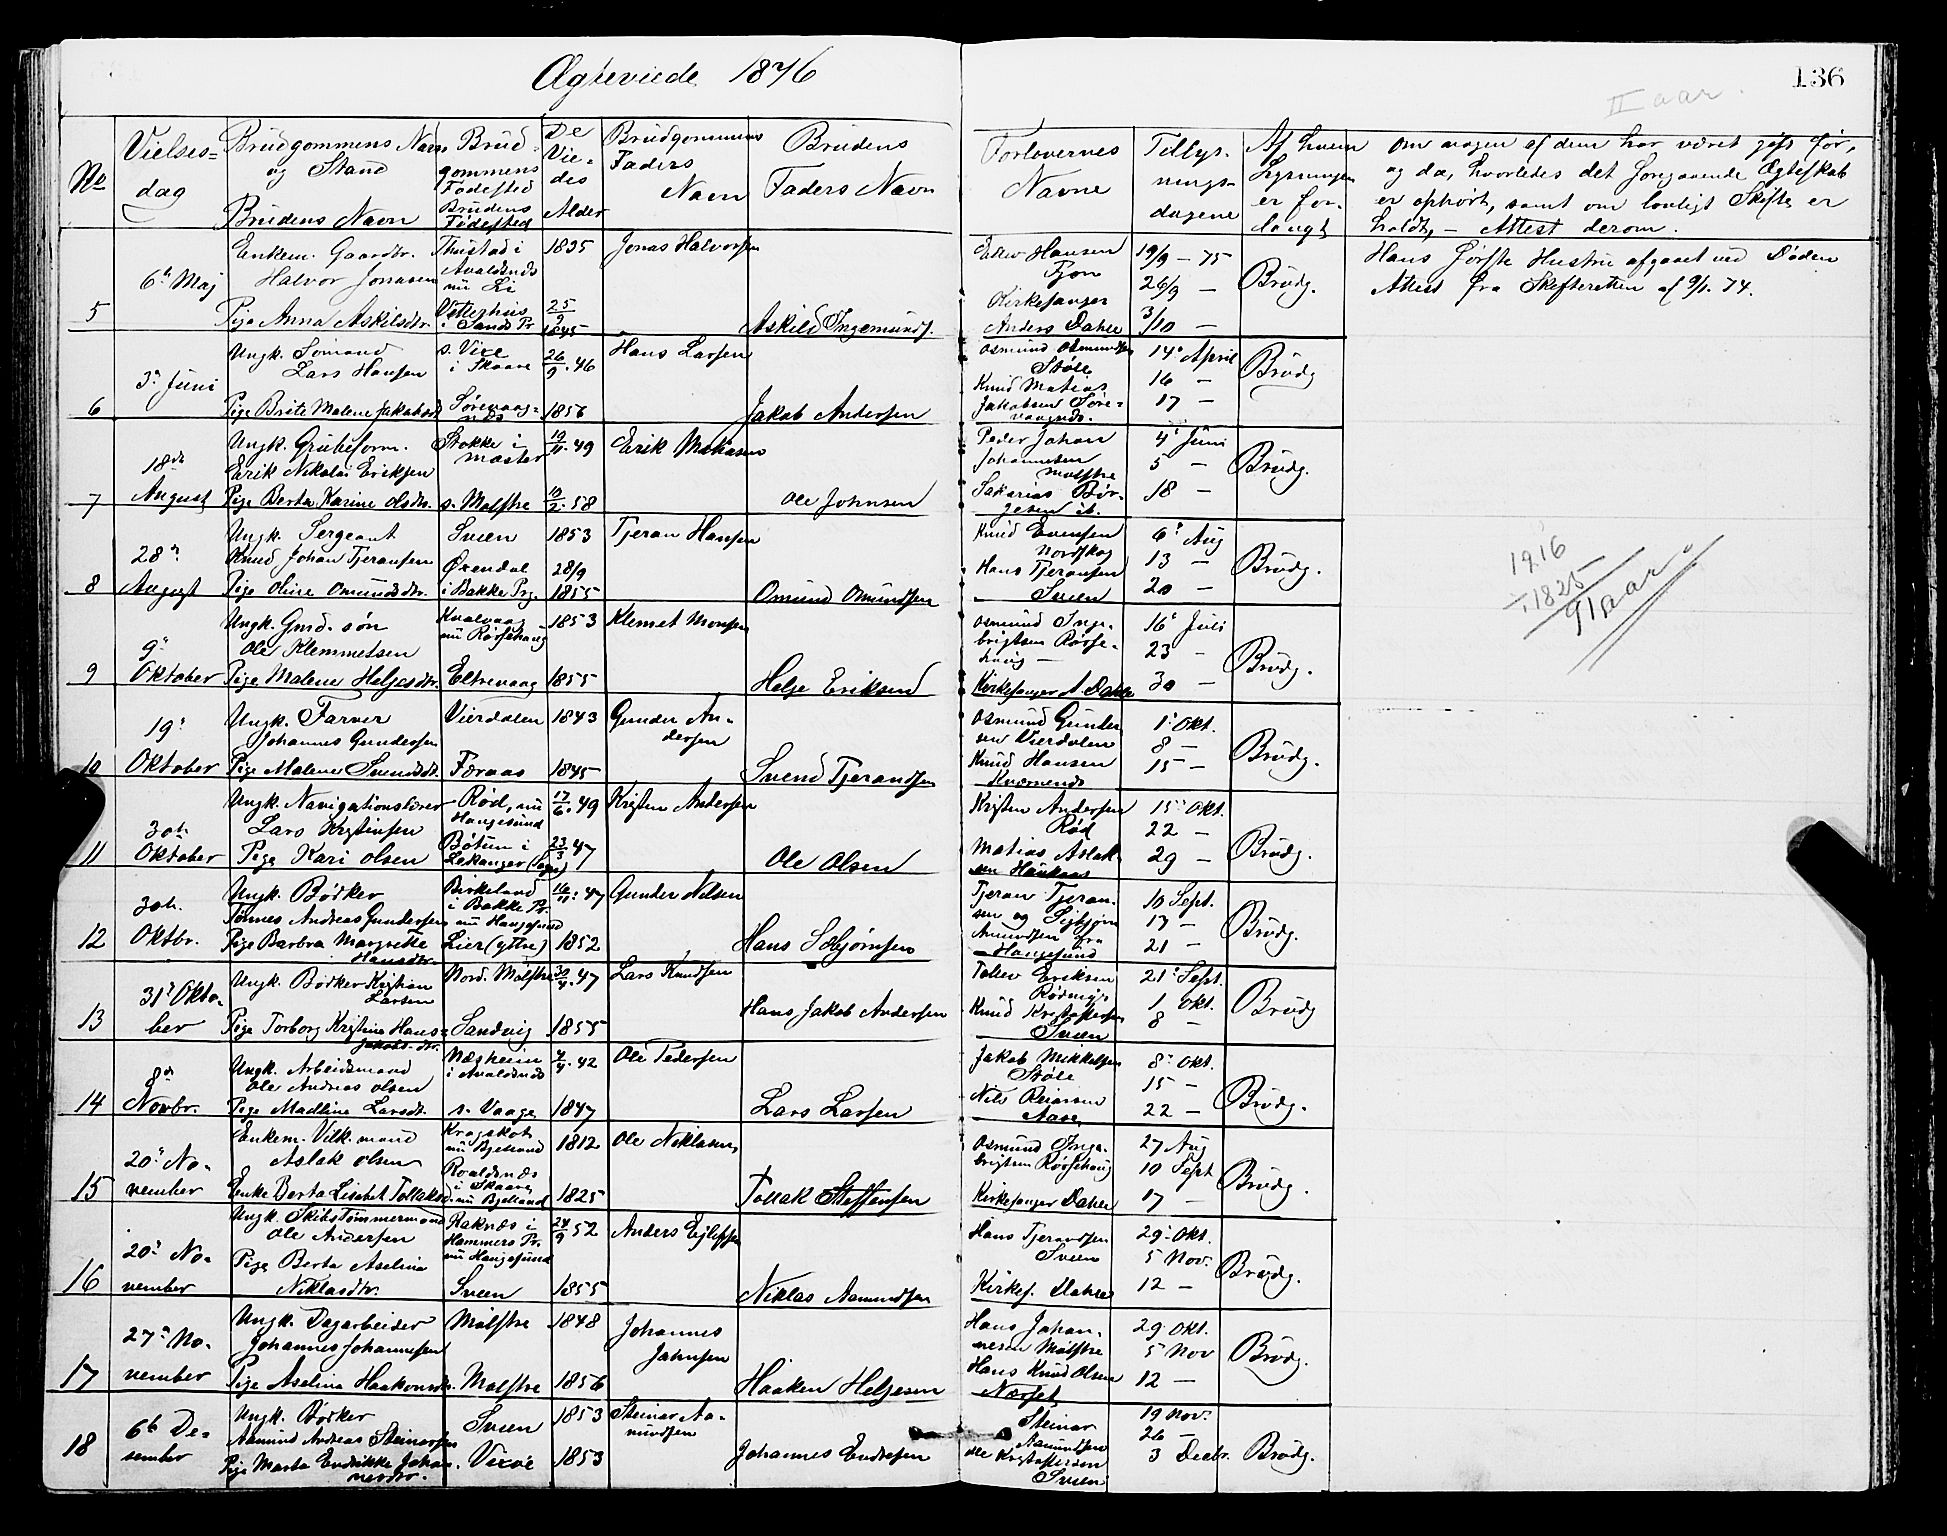 Ægteviede 1876
136
II aar.
No
Vielses-
dag
Brudgommens Navn
og Stand
Brudens Navn
Brud-
gommens
Fødested
Brudens
Fødested
De
Vie-
des
Alder
Brudgommens
Faders
Navn
Brudens
Faders Navn
Forlovernes
Navne
Tillys-
nings-
dagene
Af hvem
Lysningen
er for-
langt
Om nogen af dem har været gift før,
og da, hvorledes det foregaaende Ægteskab
er ophørt, samt om lovligt Skifte er
holdt, – Attest derom.
5
6te Maj
Enkem. Gaardbr.
Halvor Jonassen
Pige Anna Askilsdtr.
Thustad i
Avaldsnæs
nu Li
Vetrhus
i Sands Pr
1835
25/9
1845
Jonas Halvorsen
Askild Ingemunds.
Hansen
Tjon
Kirkesanger
Anders Dahle
19/9 – 75
26/9 –
3/10 –
Brudg.
Hans første Hustru afgaaet ved Døden
Attest fra Skifteretten af 9/1. 74.
6
3die Juni
Ungk. Sømand
Lars Hansen
Pige Brite Malene Jakobsdt
s. Vixe
i Skaare
Sørevaag-
26/9. 46
1856
Hans Larsen
Jakob Andersen
Osmund Osmundsen
Støle
Knud Matias
Jakobsen Søre-
vaagnæs.
14de April
16 –
17 –
Brudg
7
18de
August
Ungk. Grubeform.
Erik Nikolai Eriksen
Pige Berta Karine Olsdtr.
Stokke i
s. Mølstre
10/11. 49
10/2. 58
Erik
Ole Johnsen
Peder Johan
Johannesen
Mølstre
Sakarias Bør-
gesen
4de Juni
5 –
18 –
Brudg.
8
28de
August
Ungk. Sergeant
Knud Johan Tjeransen
Pige Oline Omundsdtr.
Sveen
Ørendal
i Bakke Prg
1853
28/9
1855
Tjeran Hansen
Omund Omundsen
Knud Evensen
Nordskog
Hans Tjeransen
Sveen
6te Aug
13 –
20 –
Brudg.
9
9de
Oktober
Ungk. Gmd. søn
Ole Klemmetsen
Pige Malene Helgesdtr.
Kvalvaag
nu Rørsehaug
Eltrevaag
1853
1855
Klemet Monsen
Helge Eriksen
Osmund Inge-
brigtsen Rørse-
haug –
Kirkesanger A. Dahle
16de Juli
23 –
30 –
Brudg.
10
19de
Oktober
Ungk. Farver
Johannes Gundersen
Pige Malene Svendsdt.
Vierdalen
Føraas
1843
1845
Gunder An-
dersen
Svend Tjerandsen
Osmund Gunder
sen Vierdalen
Knud Hansen
Kværnenes
1te Okt.
8 –
15 –
Brudg.
11
30te
Oktober
Ungk. Navigationslærer
Lars Kristensen
Pige Kari Olsen
Rød, nu
Haugesund
Bøtun i
Lekanger (Sogn)
17/6. 49
23/3 47
Kristen Andersen
Ole Olsen
Kristen Andersen
Rød
Matias Aslak-
sen Haukaas
15de Okt.
22 –
29 –
Brudg.
12
30te
Oktbr.
Ungk. Bødker
Tønnes Andreas Gundersen
Pige Barbra Margrethe
Hansdtr.
Birkeland
i Bakke Pr.
nu Haugesund
Lier (ytre)
16/11. 47
1852
Gunder Nilsen
Hans Sebjørnsen
Tjeran Tjeran-
sen og Sigbjørn
Amundsen fra
Haugesund
10 Sept.
17 –
21 –
Brudg.
13
31te Okto-
ber
Ungk. Bødker Kristian
Larsen
Pige Torborg Kristine Hans
Jakobs. dtr.
Nord. Mølstre
Sandvig
30/4. 47
1855
Lars Knudsen
Hans Jakob Andersen
Tollev Eriksen
Knud Kristoffersen
Sveen
21de Sept.
1 Okt.
8 –
Brudg
14
8de
Novbr.
Ungk. Arbeidsmand
Ole Andreas Olsen
Pige Madline Larsdt.
Næsheim
i Avaldsnæs
s. Vaage
42
1847
Ole Pedersen
Lars Larsen
Jakob Mikkelsen
Støle
Nils Reiarsen
8de Okt.
15 –
22 –
Brudg.
15
20de No-
vember
Enkem. Vilk. mand
Aslak Olsen
Enke Berta Lisabet Tollaksd.
Kragskot
nu Bjelland
Roaldsnæs
i Skaare
nu Bjelland
1812
1825
Ole Niklasen
Tollak Steffensen
Osmund Inge-
brigtsen Rørsehaug
Kirkesanger Dahle
27 Aug
10 Sept
17 –
Brudg.
1916
÷ 1825
91 aar
16
20de No-
vember
Ungk. Skibstømmermand
Ole Andersen
Pige Berta Aselina
Niklasdtr.
Raknæs i
Hammers Pr.
nu Haugesund
Sveen
24/9 52
1855
Anders Ejlifsen
Niklas Aamundsen
Hans Tjerandsen
Sveen
Kirkes. Dahle
29de Okt.
5 Nov.
12 –
Brudg.
17
27de No-
vember
Ungk. Dagarbeider
Johannes Johannesen
Pige Aselina Haakonsdt.
Mølstre
Mølstre
1848
1856
Johannes
Johnsen
Haaken Helgesen
Hans Johan-
nesen Mølstre
Hans Knud Olsen
29 Okt.
5 Nov
12 –
Brudg.
18
6te De-
sember
Ungk. Bødker
Aamund Andreas Steinarsen
Pige Marta Endrikke Johan-
nesdtr.
Sveen
Vixve
1853
1853
Steinar Aa-
mundsen
Johannes Endresen
Steinar
Aamundsen
Ole Kristoffersen
Sveen
19 Nov.
26 –
3 Decbr.
Brudg.